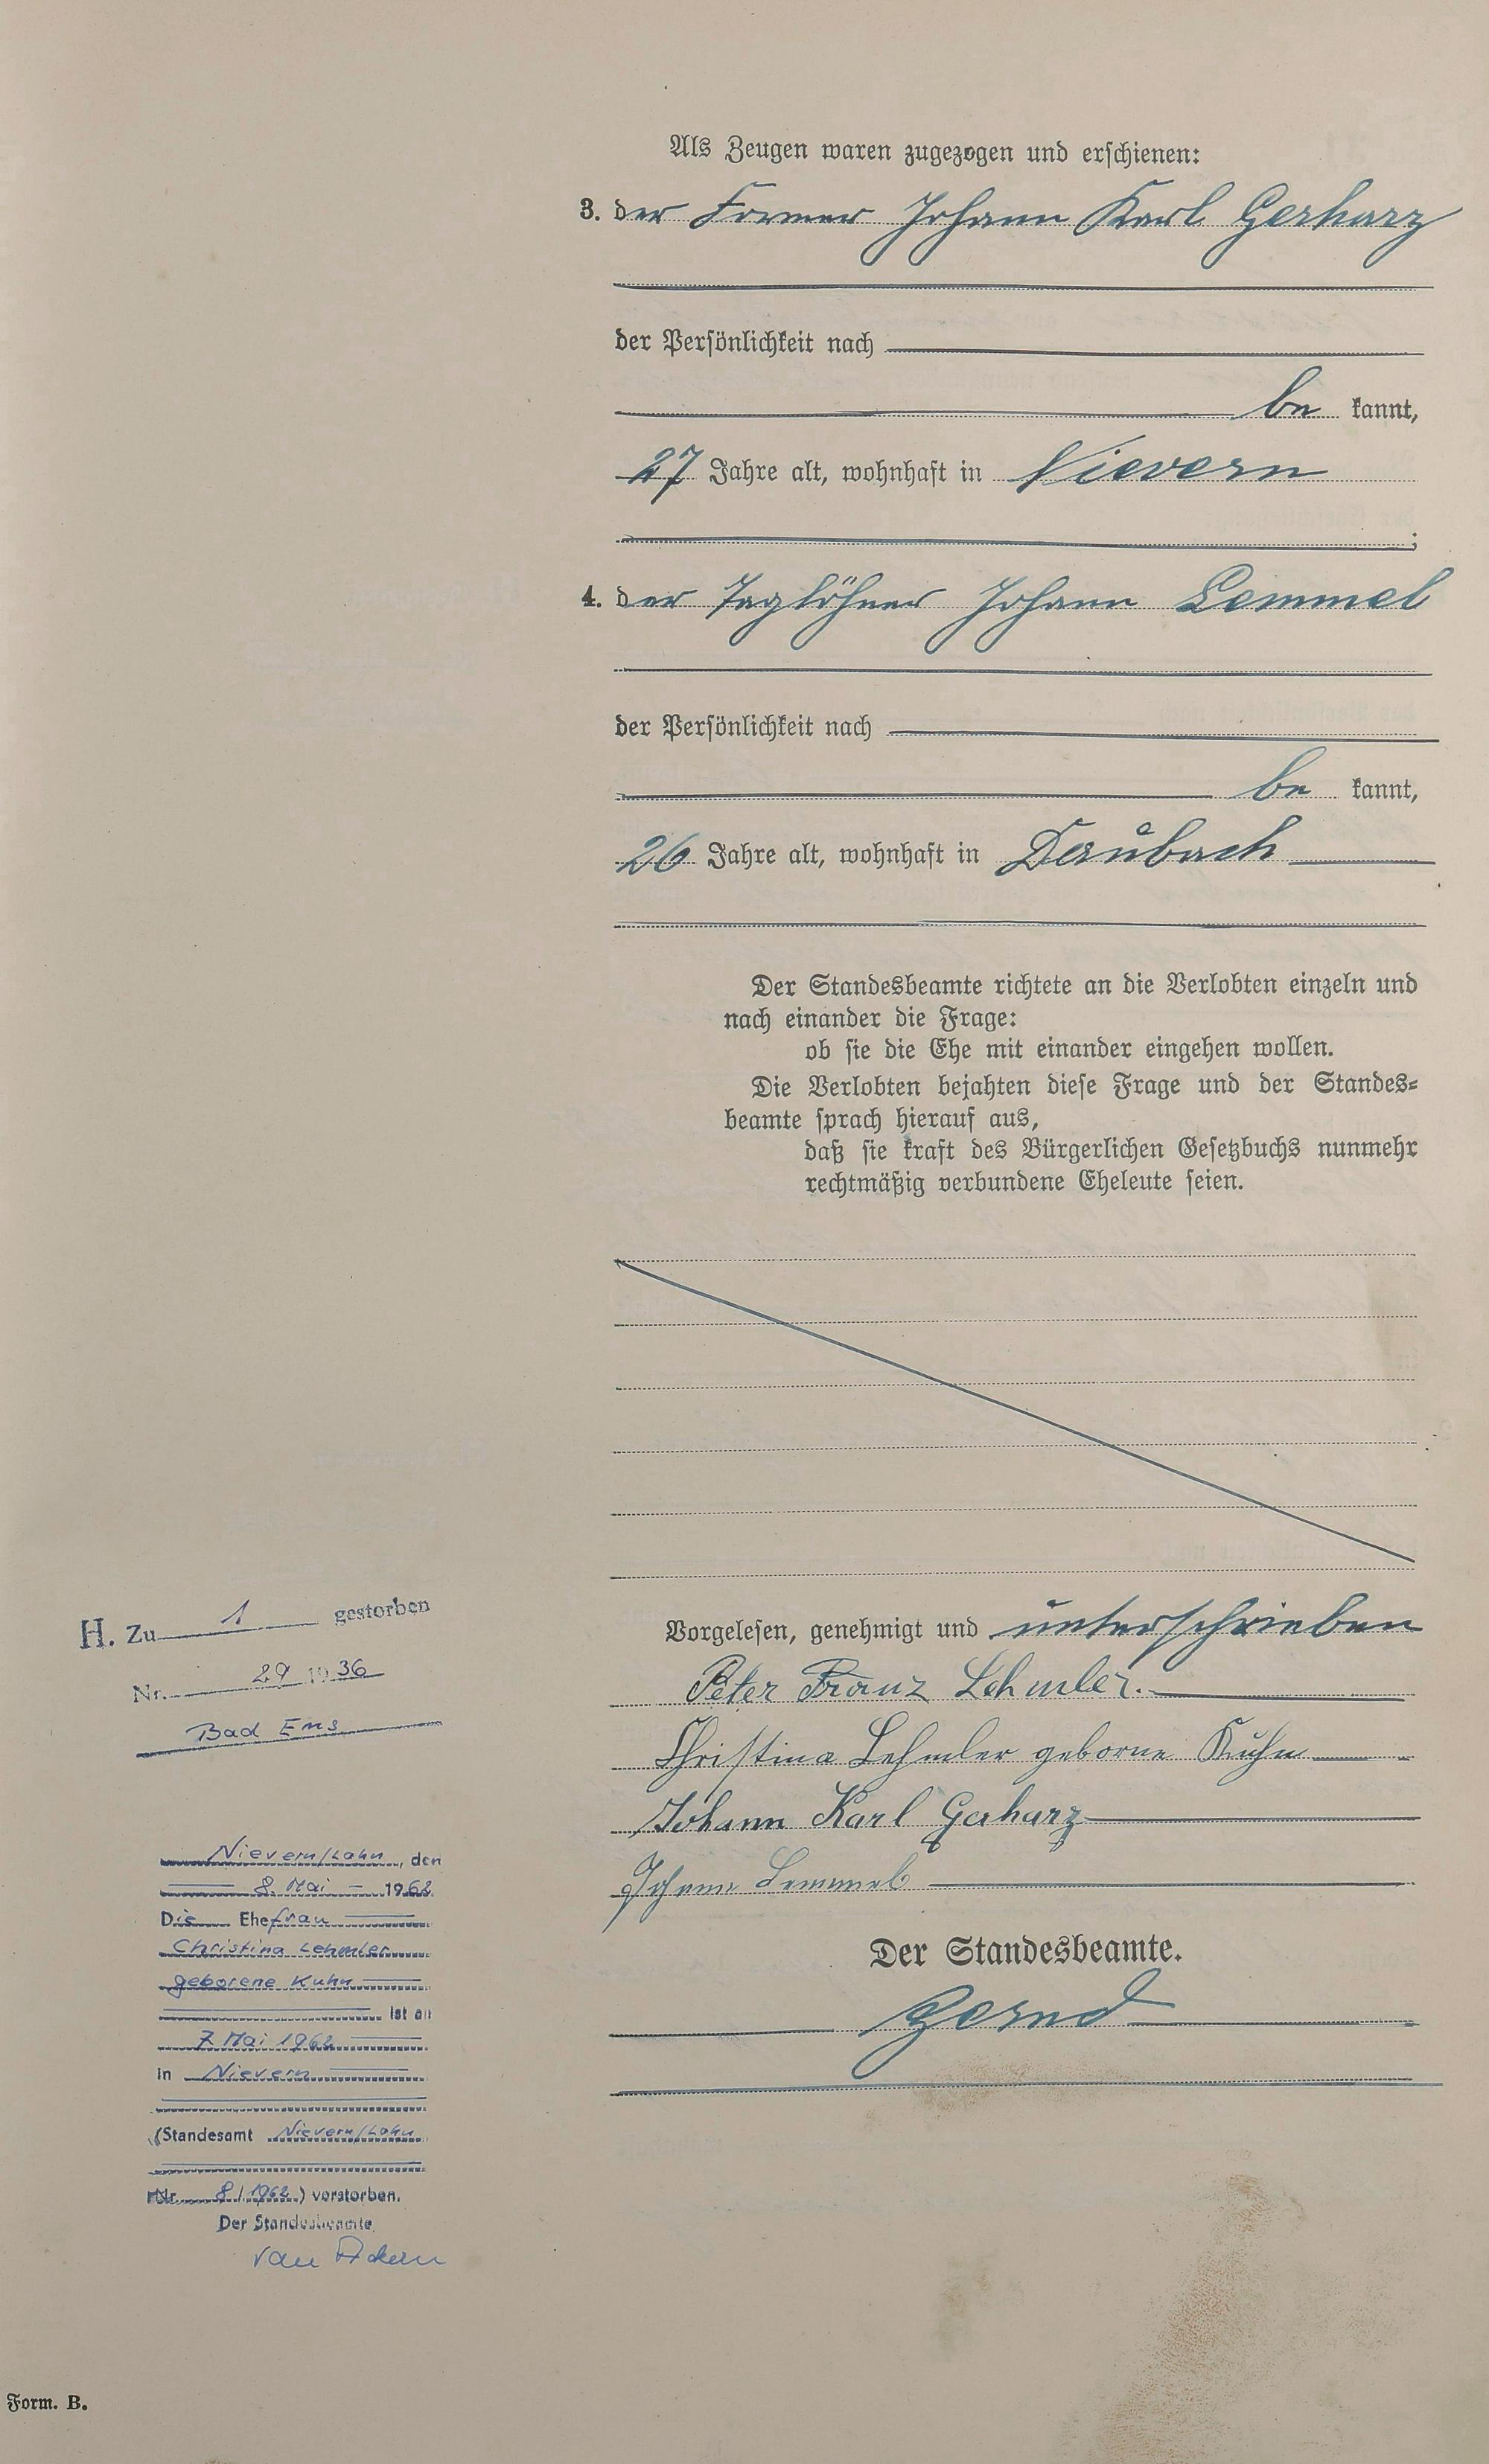 Als Zeugen waren zugezogen und erschienen:
3. der Former Johann Karl Gerharz
der Persönlichkeit nach
be kannt,
27 Jahre alt, wohnhaft in Nievern
;
4. der Taglöhner Johann Lemmel
der Persönlichkeit nach
be kannt,
26 Jahre alt, wohnhaft in Daubach
Der Standesbeamte richtete an die Verlobten einzeln und
nach einander die Frage:
ob sie die Ehe mit einander eingehen wollen.
Die Verlobten bejahten diese Frage und der Standes=
beamte sprach hierauf aus,
daß sie kraft des Bürgerlichen Gesetzbuchs nunmehr
rechtmäßig verbundene Eheleute seien.
Vorgelesen, genehmigt und unterschrieben
Peter Franz Lehmler.
Christina Lehmler geborne Kuhn
Johann Karl Gerharz
Johann Lemmel
Der Standesbeamte.
H. Zu 1 gestorben
Nr. 29 1936
Bad Ems
Nievern/Lahn, den
8. Mai 1962
Die Ehefrau
Christina Lehmler
geborene Kuhn
ist am
7 Mai 1962
in Nievern
(Standesamt Nievern/Lahn
Nr. 8/1962) verstorben.
Der Standesbeamte
Form. B.